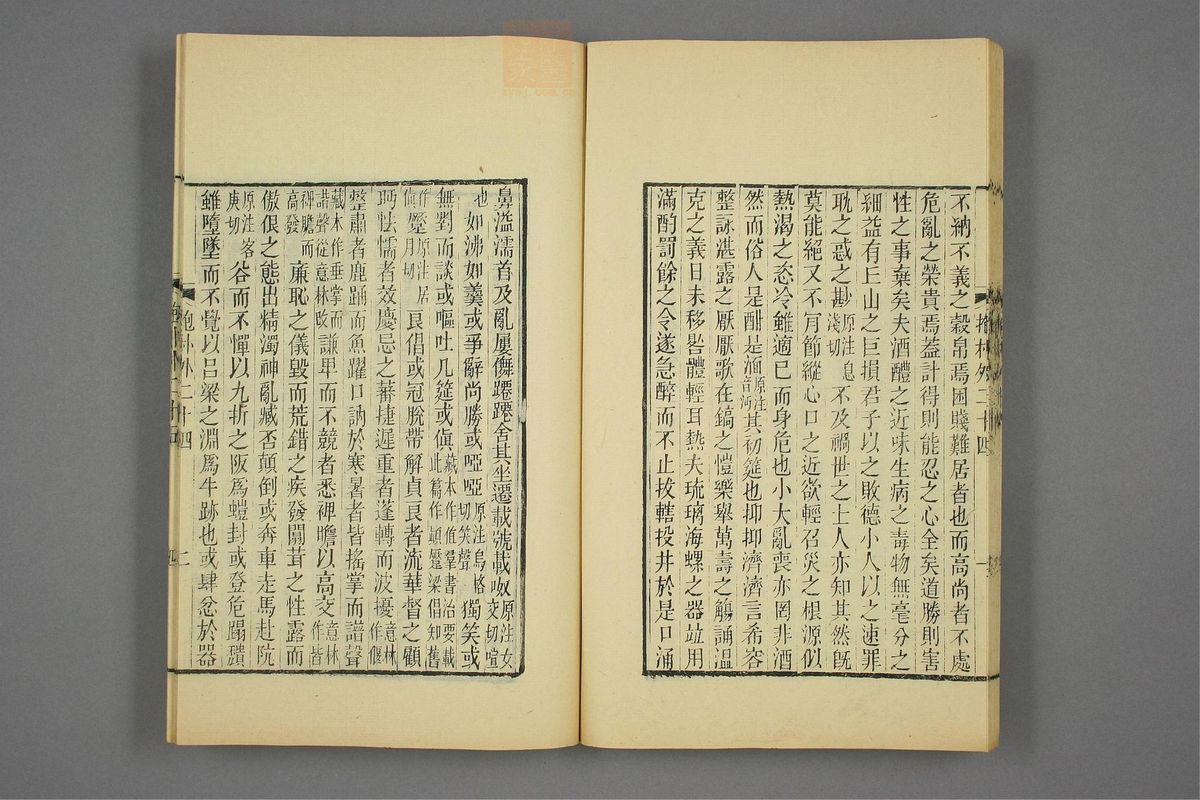 不納不義之穀帛焉困賤難居者也而高尚者不處
危亂之榮貴焉蓋計得則能忍之心全矣道勝則害
性之事棄矣夫酒醴之近味生病之毒物無毫分之
細益有丘山之巨損君子以之敗德小人以之速罪
耽之惑之尠原注息淺切不及禍世之士人亦知其然旣
莫能絕又不肎節縱心口之近欲輕召災之根源似
熱渴之恣冷雖適已而身危也小大亂喪亦罔非酒
然而俗人是酣是湎原注音沔其初筵也抑抑濟濟言希容
整詠湛露之厭厭歌在鎬之愷樂舉萬壽之觴誦溫
克之義日未移晷體輕耳熱夫琉璃海螺之器竝用
滿酌罰餘之令遂急醉而不止拔轄投井於是口涌
鼻溢濡首及亂屢儛躚躚舍其坐遷載號載呶原注女交切喧
也如沸如羹或爭辭尚勝或啞啞原注烏格切笑聲獨笑或
無對而談或嘔吐几筵或傎藏本作值羣書治要載此篇作顚蹷梁倡知舊
作傎蹷原注居月切良倡或冠脫帶解貞良者流華督之顧
眄怯懦者效慶忌之蕃捷遲重者蓬轉而波擾意林作偃
整肅者鹿踊而魚躍口訥於寒暑者皆搖掌而譜聲
藏本作垂掌而諧聲從意林改謙卑而不競者悉裨瞻以高交意林作皆
裨膽而高發廉恥之儀毀而荒錯之疾發闒茸之性露而
傲佷之態出精濁神亂臧否顛倒或奔車走馬赴阬
原注客庚切谷而不憚以九折之阪爲螘封或登危蹋穨
雖墮墜而不覺以呂梁之淵爲牛跡也或肆忿於器
抱朴外二十四
二